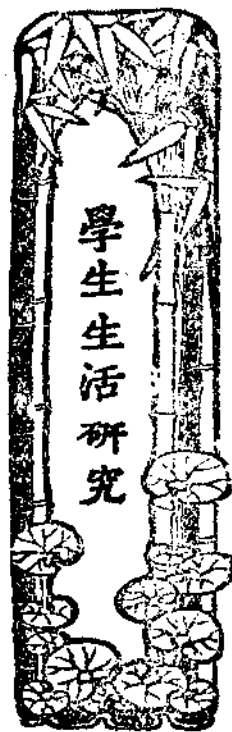 學生生活研究